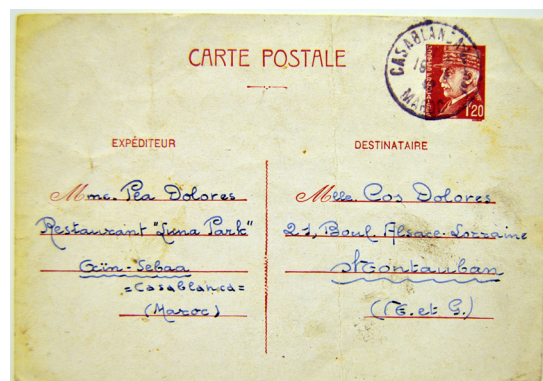 CARTE POSTALE
CASABLANCA
MAROC
1F20
EXPÉDITEUR
Mme. Pla Dolores
Restaurant "Luna Park"
Aïn-Sebaa
=Casablanca=
(Maroc)
DESTINATAIRE
Melle. Cos Dolores
21, Boul Alsace-Lorraine
Montauban
(T. et G.)